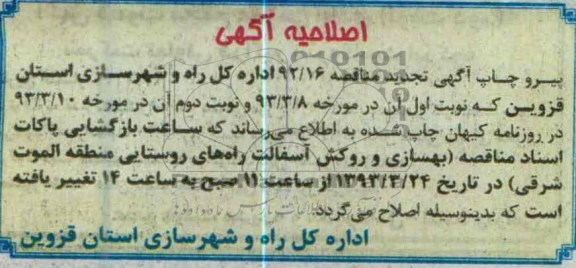 اصلاحیه آگهی
پیرو چاپ آگهی تجدید مناقصه ۹۲/۱۶ اداره کل راه و شهرسازی استان
قزوین که نوبت اول آن در مورخه ۹۳/۳/۸ و نوبت دوم آن در مورخه ۹۳/۳/۱۰
در روزنامه کیهان چاپ شده به اطلاع می‌رساند که ساعت بازگشایی پاکات
اسناد مناقصه (بهسازی و روکش آسفالت راه‌های روستایی منطقه الموت
شرقی) در تاریخ ۱۳۹۳/۳/۲۴ از ساعت ۱۱ صبح به ساعت ۱۴ تغییر یافته
است که بدینوسیله اصلاح می‌گردد.
اداره کل راه و شهرسازی استان قزوین